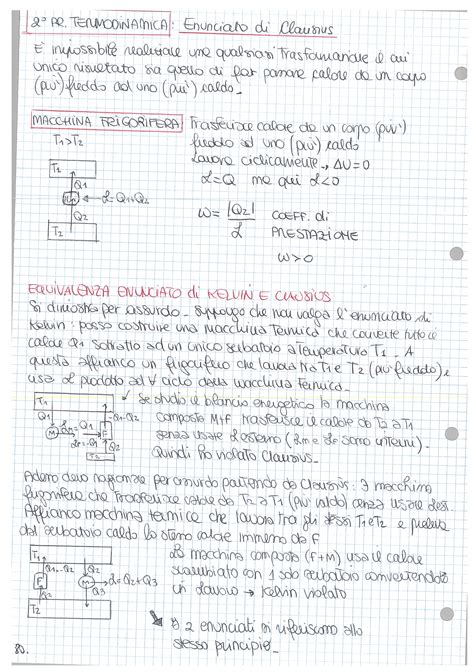 2° PR. TERMODINAMICA: Enunciato di Clausius
È impossibile realizzare una qualsiasi trasformazione il cui
unico risultato sia quello di far passare calore da un corpo
(più) freddo ad uno (più) caldo.
MACCHINA FRIGORIFERA Trasferisce calore da un corpo (più)
T1>T2 freddo ad uno (più) caldo
Lavora ciclicamente → ΔU=0
L=Q ma qui L<0
T1
Q1
L=Q1+Q2
Q2
T2
ω = |Q2|/L COEFF. di
PRESTAZIONE
ω>0
EQUIVALENZA ENUNCIATO di KELVIN E CLAUSIUS
Si dimostra per assurdo. Suppongo che non valga l'enunciato di
Kelvin: posso costruire una macchina termica che converte tutto il
calore Q1 sottratto ad un unico serbatoio a temperatura T1. A
questa affianco un frigorifero che lavora tra T1 e T2 (più freddo) e
usa L prodotto ad ∀ ciclo della macchina termica.
T1
Q1
-Q1-Q2
M
F
Q2
T2
Se studio il bilancio energetico la macchina
composta M+F trasferisce il calore da T2 a T1
senza usare L esterno (Lm e Lf sono interni).
Quindi ho violato Clausius.
Adesso devo ragionare per assurdo partendo da Clausius: ∃ macchina
frigorifera che trasferisce calore da T2 a T1 (più caldo) senza usare L est.
Affianco macchina termica che lavora tra gli stessi T1 e T2 e preleva
dal serbatoio caldo lo stesso calore immesso da F
T1
Q1=-Q2
Q2
F
M
L=Q2+Q3
Q3
T2
La macchina composta (F+M) usa il calore
scambiato con 1 solo serbatoio convertendolo
in lavoro → Kelvin violato
I 2 enunciati si riferiscono allo
stesso principio.
80.